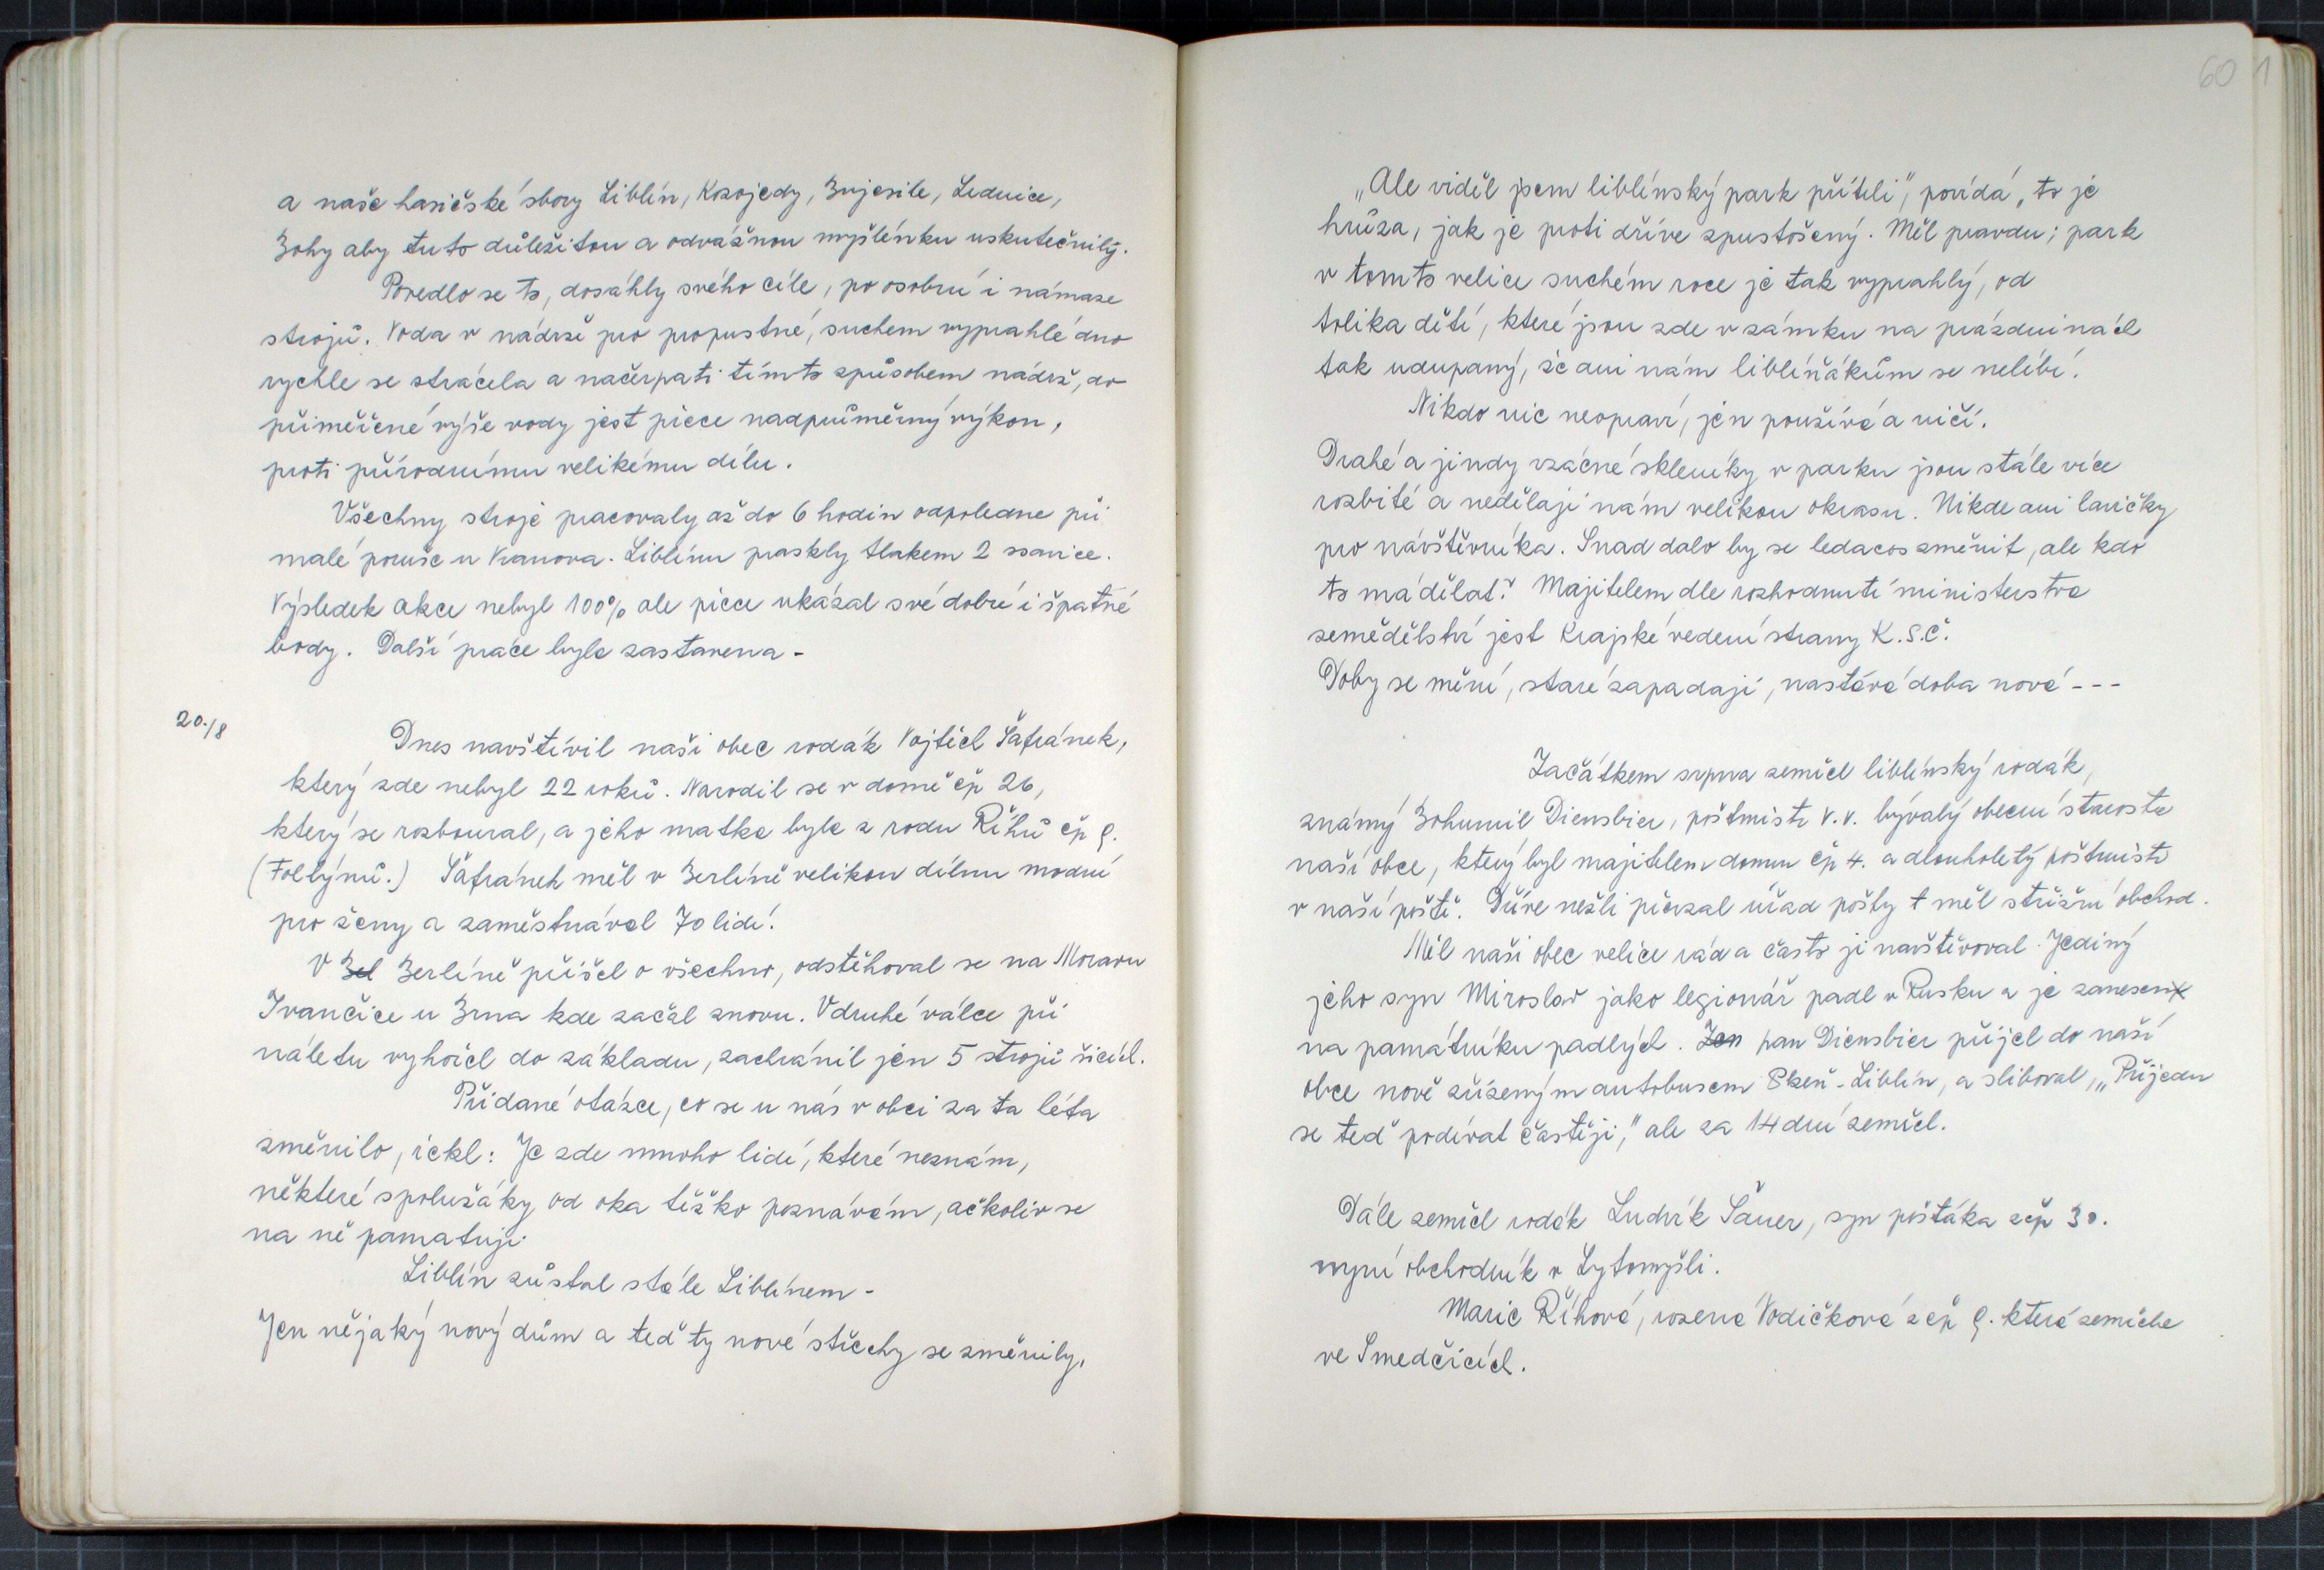 a naše hasičské sbory Liblín, Kozojedy, Bujesile, Lednice,
Bohy aby tuto důležitou a odvážnou myšlénku uskutečnily.
Povedlo se to, dosáhly svého cíle, po osobní i námaze
strojů. Voda v nádrži pro propustné, suchem vyprahlé dno
rychle se ztrácela a načerpati tímto způsobem nádrž, do
přiměřené výše vody jest přece nadprůměrný výkon,
proti přírodnímu velikému dílu.
Všechny stroje pracovaly až do 6 hodin odpoledne při
malé poruše u Vranova. Liblínu praskly tlakem 2 ssavice.
Výsledek akce nebyl 100% ale přece ukázal své dobré i špatné
body. Další práce byla zastavena -
20./8
Dnes navštívil naši obec rodák Vojtěch Šafránek,
který zde nebyl 22 roků. Narodil se v domě čp 26,
který se rozboural, a jeho matka byla z rodu Říhů čp 9.
(Foltýnů.) Šafránek měl v Berlíně velikou dílnu modní
pro ženy a zaměstnával 70 lidí.
V Bel Berlíně přišel o všechno, odstěhoval se na Moravu
Ivančice u Brna kde začal znovu. V druhé válce při
náletu vyhořel do základu, zachránil jen 5 strojů šicích.
Při dané otázce, co se u nás v obci za ta léta
změnilo, řekl: Je zde mnoho lidí, které neznám,
některé spolužáky od oka těžko poznávám, ačkoliv se
na ně pamatuji.
Liblín zůstal stále Liblínem -
Jen nějaký nový dům a teď ty nové střechy se změnily.
60 1
„Ale viděl jsem liblínský park příteli", povídá „to je
hrůza, jak je proti dříve zpustošený. Měl pravdu; park
v tomto velice suchém roce je tak vyprahlý, od
tolika dětí, které jsou zde v zámku na prázdninách
tak udupaný, že ani nám liblíňákům se nelíbí.
Nikdo nic neopraví, jen používá a ničí.
Drahé a jindy vzácné skleníky v parku jsou stále více
rozbité a nedělají nám velikou okrasu. Nikde ani lavičky
pro návštěvníka. Snad dalo by se ledacos změnit, ale kdo
to má dělat? Majitelem dle rozhodnutí ministerstva
zemědělství jest Krajské vedení strany K.S.Č.
Doby se mění, staré zapadají, nastává doba nová - - -
Začátkem srpna zemřel liblínský rodák,
známý Bohumil Diensbier, poštmistr v.v. bývalý obecní starosta
naší obce, který byl majitelem domu čp 4. a dlouholetý poštmistr
v naší poště. Dříve nežli převzal úřad pošty t měl střižní obchod.
Měl naši obec velice rád a často ji navštěvoval. Jediný
jeho syn Miroslav jako legionář padl v Rusku a je zanesen
na památníku padlých. Jen pan Diensbier přijel do naší
obce nově zřízeným autobusem Plzeň-Liblín, a sliboval, „Přijedu
se teď podívat častěji," ale za 14 dní zemřel.
Dále zemřel rodák Ludvík Šauer, syn pošťáka z čp 30.
nyní obchodník v Lytomyšli.
Marie Říhová, rozená Vodičková z čp 9. která zemřela
ve Smedčicích.